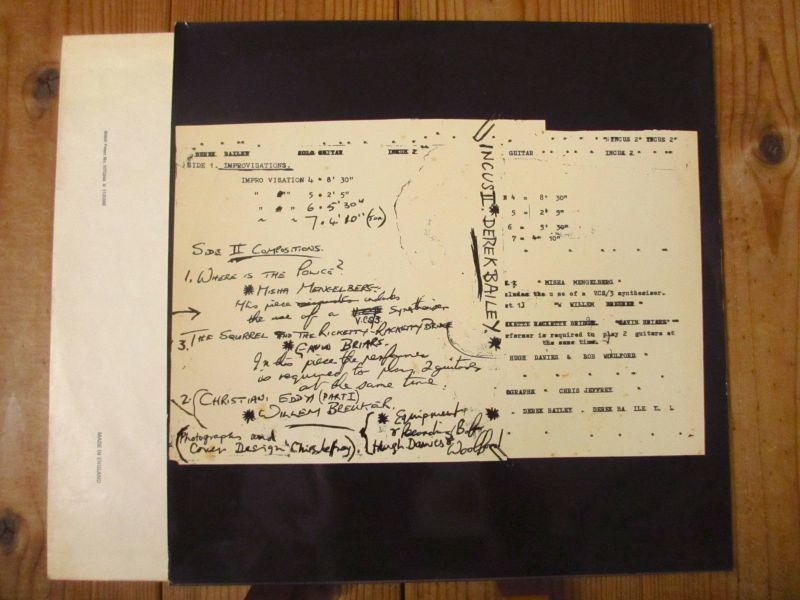 DEREK BAILEY SOLO GUITAR INCUS 2
SIDE 1. IMPROVISATIONS.
IMPRO VISATION 4 * 8' 30"
" " 5 * 2' 5"
" " 6 * 5' 30"
" " 7 * 4' 10" (Ton)
SIDE II COMPOSITIONS.
1. WHERE IS THE POLICE?
* MISHA MENGELBERG.
this piece includes
the use of a VCS/3 Synthesiser
3. THE SQUIRREL AND THE RICKETTY-RACKETTY BRIDGE
* GAVIN BRIARS.
In this piece the performer
is required to play 2 guitars
at the same time.
2. CHRISTIANI EDDY (PART I)
* WILLEM BREUKER.
(Photographs and
Cover Design * Chris Jefrey).
* Equipment
& Recording * Bob
Hugh Davies & Woolford
INCUS II * DEREK BAILEY. *
* INCUS 2* INCUS 2*
GUITAR INCUS 2 *
N 4 = 8' 30"
5 = 2' 5"
6 = 5' 30"
7 = 4' 10"
E.? * MISHA MENGELBERG *
cludes the use of a VCS/3 synthesiser.
rt 1) "W WILLEM BREUKER *
KKETTE RACKETTE BRIDGE. *GAVIN BRIARS*
rformer is required to play 2 guitars at
the same time.
HUGH DAVIES & BOB WOOLFORD *
OGRAPHS * CHRIS JEFFREY *
* DEREK BAILEY . DEREK BA. ILE Y. L
MADE IN ENGLAND